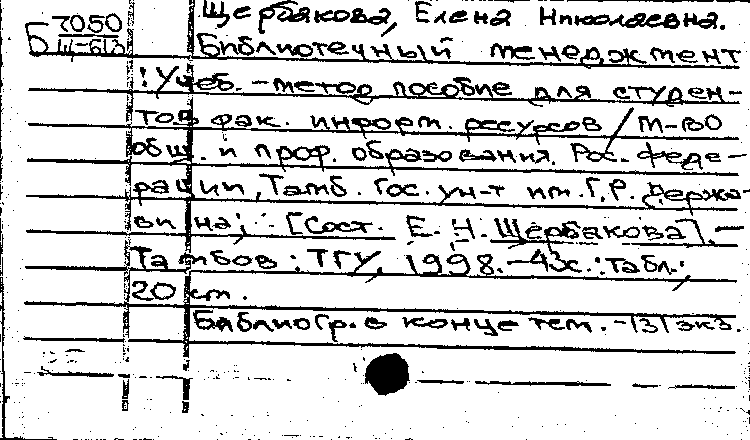 Щербакова, Елена Николаевна.
Б 7050
Щ-613
Библиотечный менеджмент
: Учеб.-метод пособие для студен-
тов фак. информ. ресурсов / М-во
общ. и проф. образования. Рос. Феде-
рации, Тамб. гос. ун-т им. Г.Р. Держа-
вина; [Сост. Е. Н. Щербакова]. -
Тамбов : ТГУ, 1998. - 43с. : табл.;
20 см.
Библиогр. в конце тем. -
экз.